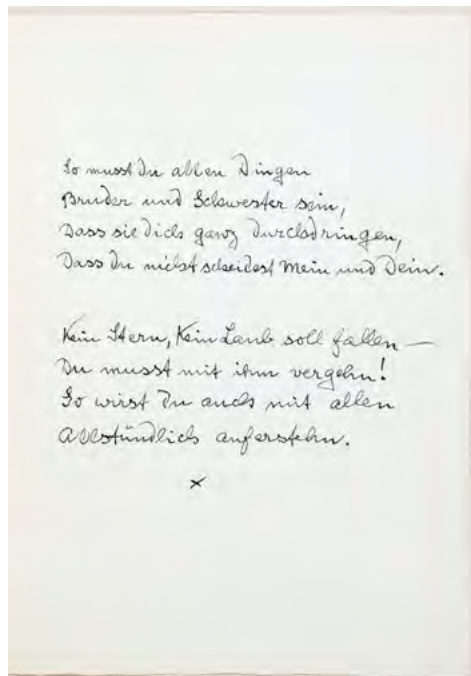 So musst Du allen Dingen
Bruder und Schwester sein,
Dass sie Dich ganz durchdringen,
Dass Du nicht scheidest Mein und Dein.
Kein Stern, Kein Laub soll fallen —
Du musst mit ihm vergehn!
So wirst Du auch mit allen
Allstündlich auferstehn.
×